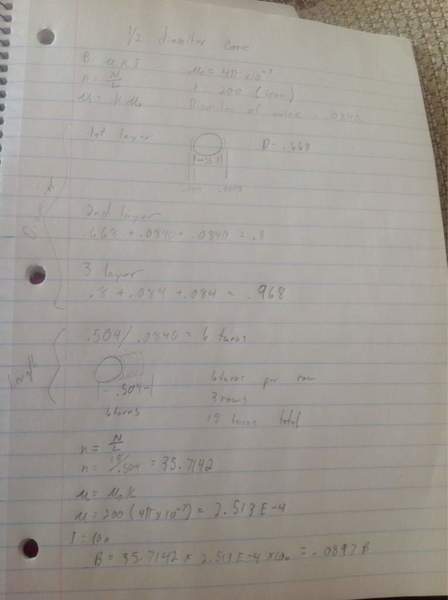 1/2 diameter Core
B = μ n I
n = N/L
μ = K μ0
μ0 = 4π x10^-7
200 (iron)
Diameter of .0840
1st layer
D = .668
2nd layer
.668 + .084 + .0840 = .8
3 layer
.8 + .084 + .084 = .968
.504/.0840 = 6 turns
length
.504
6 turns
6 turns per row
3 rows
18 turns total
n = N/L
n = 18/.504 = 35.7142
μ = μ0 K
μ = 200 (4π x10^-7) = 2.513 E-4
I = 10a
B = 35.7142 x 2.513 E-4 x 10a = .0897 B